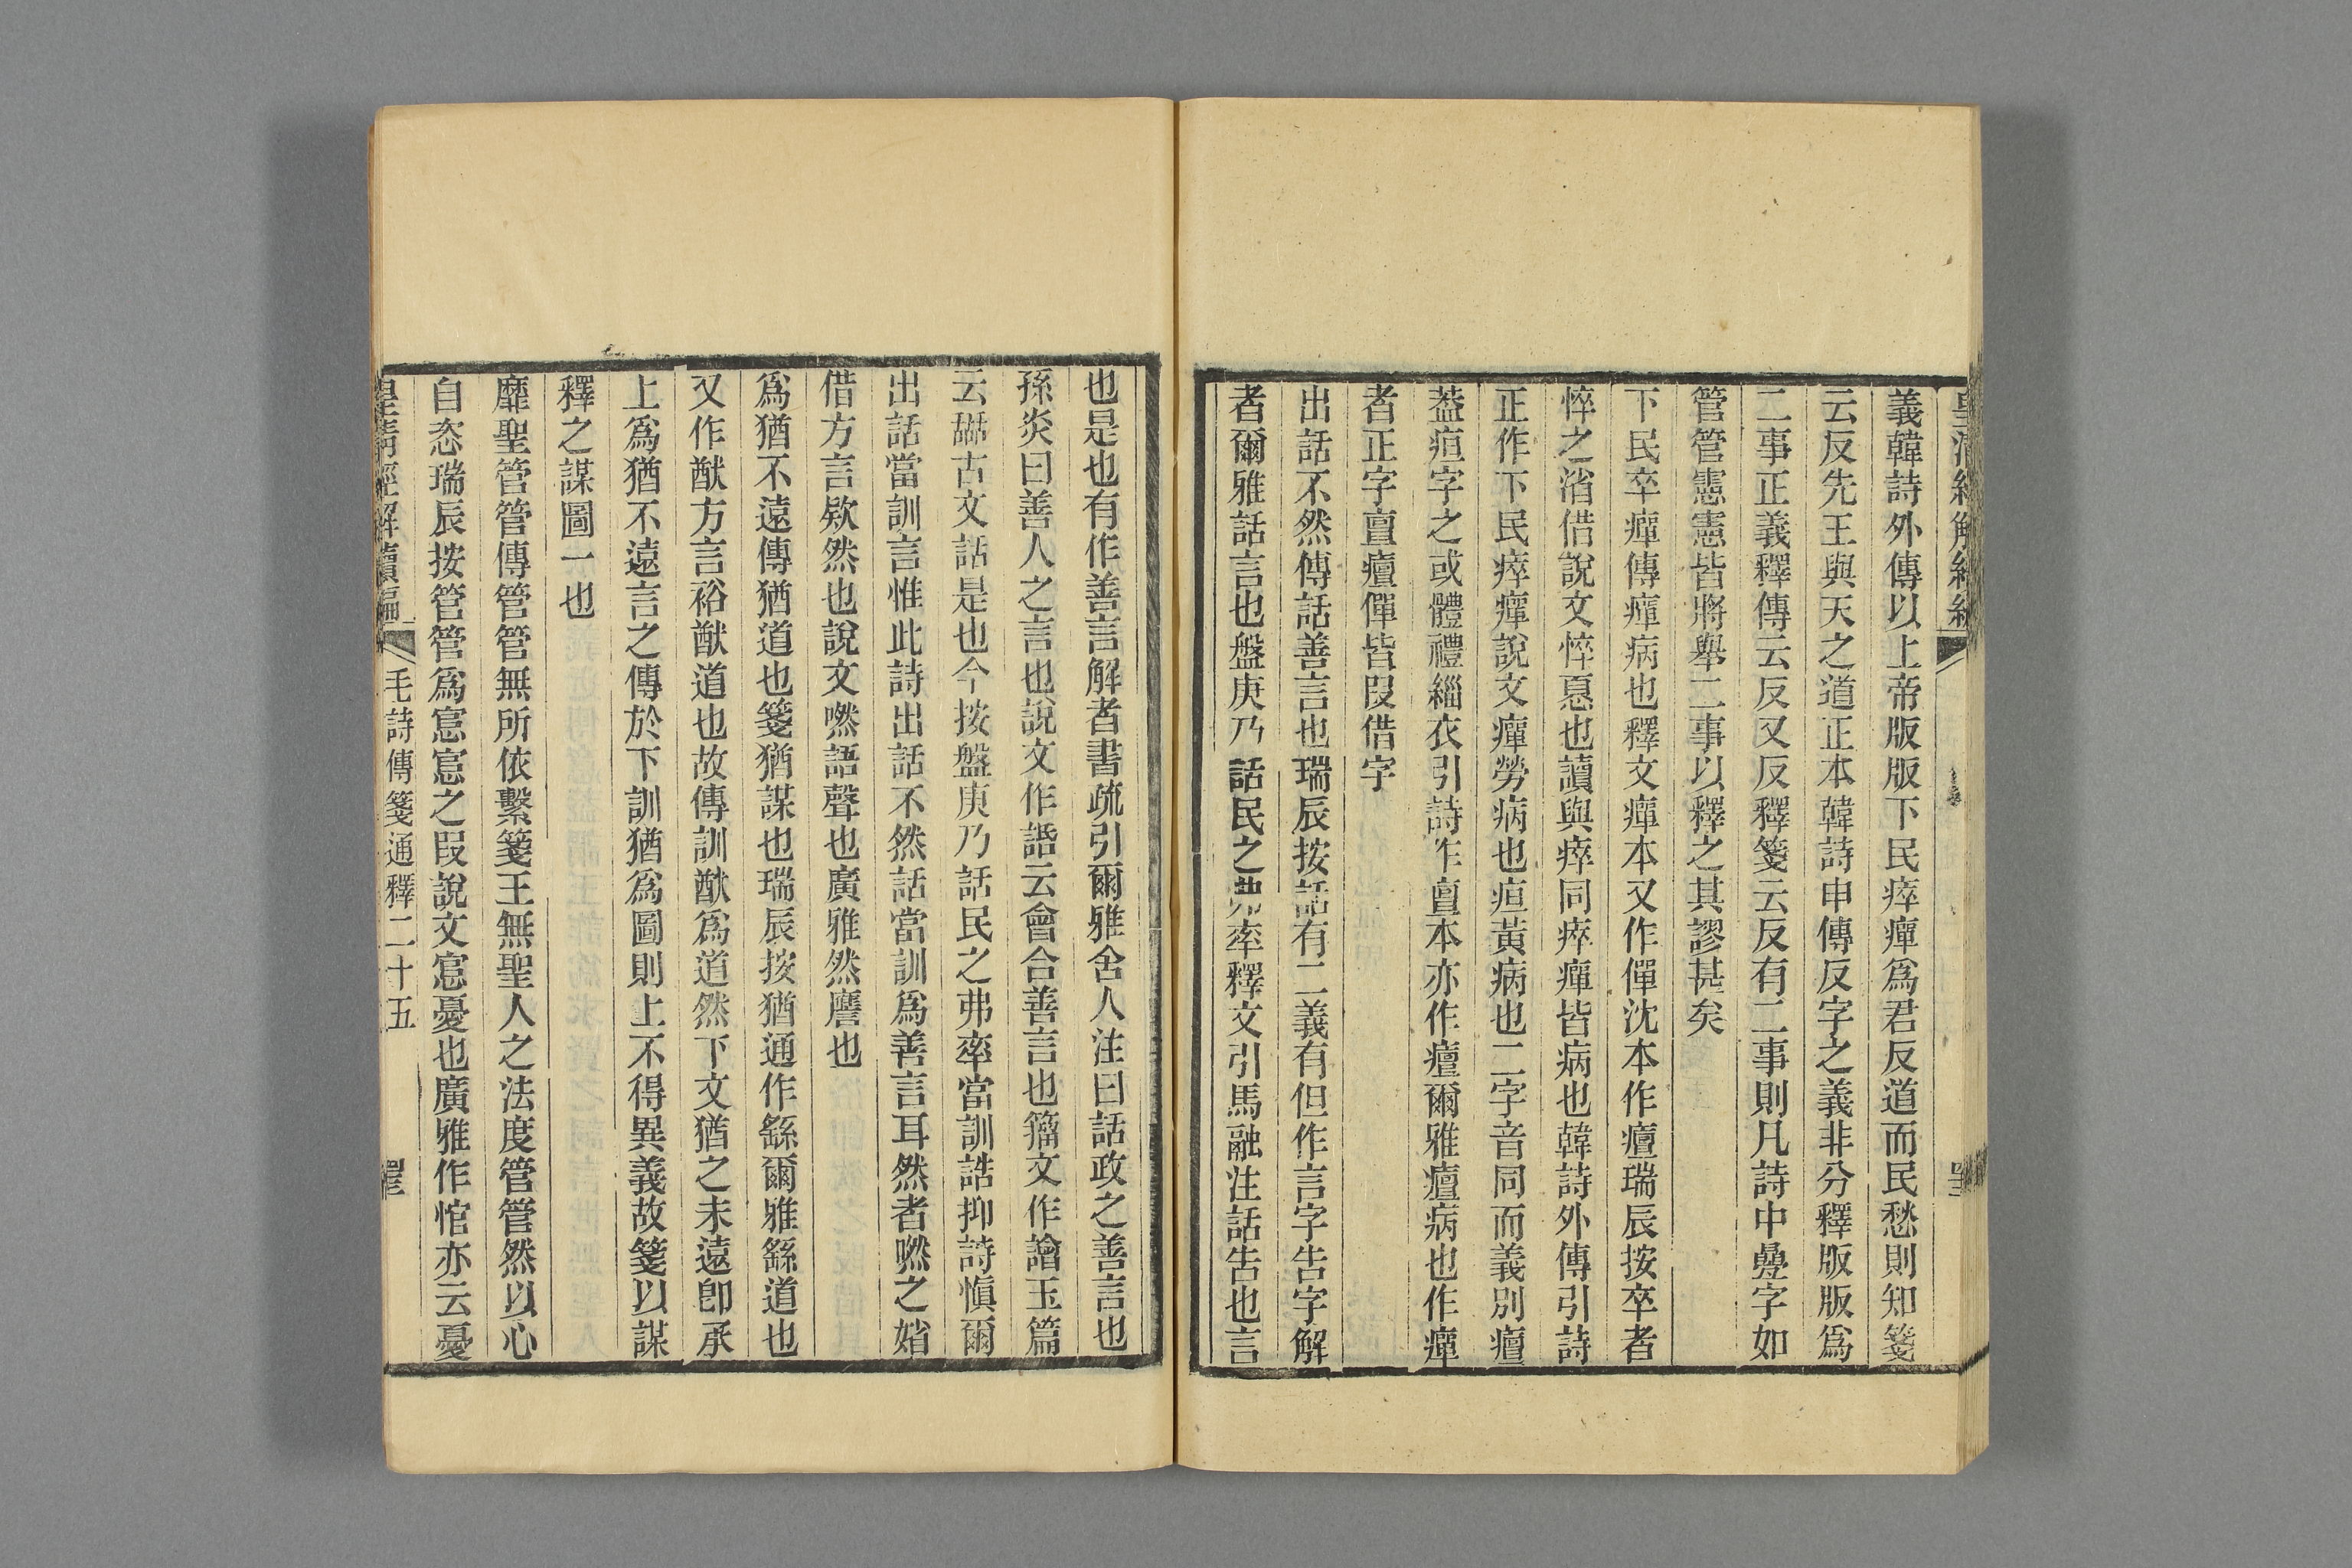 義韓詩外傳以上帝版版下民瘁癉爲君反道而民愁則知箋
云反先王與天之道正本韓詩申傳反字之義非分釋版版爲
二事正義釋傳云反又反釋箋云反有二事則凡詩中疊字如
管管憲憲皆將舉二事以釋之其謬甚矣
下民卒癉傳癉病也釋文癉本又作僤沈本作癉瑞辰按卒者
悴之渻借說文悴憂也讀與瘁同瘁癉皆病也韓詩外傳引詩
正作下民瘁癉說文癉勞病也疸黃病也二字音同而義別癉
葢疸字之或體禮緇衣引詩作亶本亦作癉爾雅癉病也作癉
者正字亶癉僤皆叚借字
出話不然傳話善言也瑞辰按話有二義有但作言字告字解
者爾雅話言也盤庚乃話民之弗率釋文引馬融注話告也言
也是也有作善言解者書疏引爾雅舍人注曰話政之善言也
孫炎曰善人之言也說文作䛡云會合善言也籒文作譮玉篇
云𧩼古文話是也今按盤庚乃話民之弗率當訓誥抑詩愼爾
出話當訓言惟此詩出話不然話當訓爲善言耳然者嘫之渻
借方言欸然也說文嘫語聲也廣雅然譍也
爲猶不遠傳猶道也箋猶謀也瑞辰按猶通作繇爾雅繇道也
又作猷方言裕猷道也故傳訓猷爲道然下文猶之未遠卽承
上爲猶不遠言之傳於下訓猶爲圖則上不得異義故箋以謀
釋之謀圖一也
靡聖管管傳管管無所依繫箋王無聖人之法度管管然以心
自恣瑞辰按管管爲悹悹之叚說文悹憂也廣雅作悺亦云憂
皇清經解續編 毛詩傳箋通釋二十五